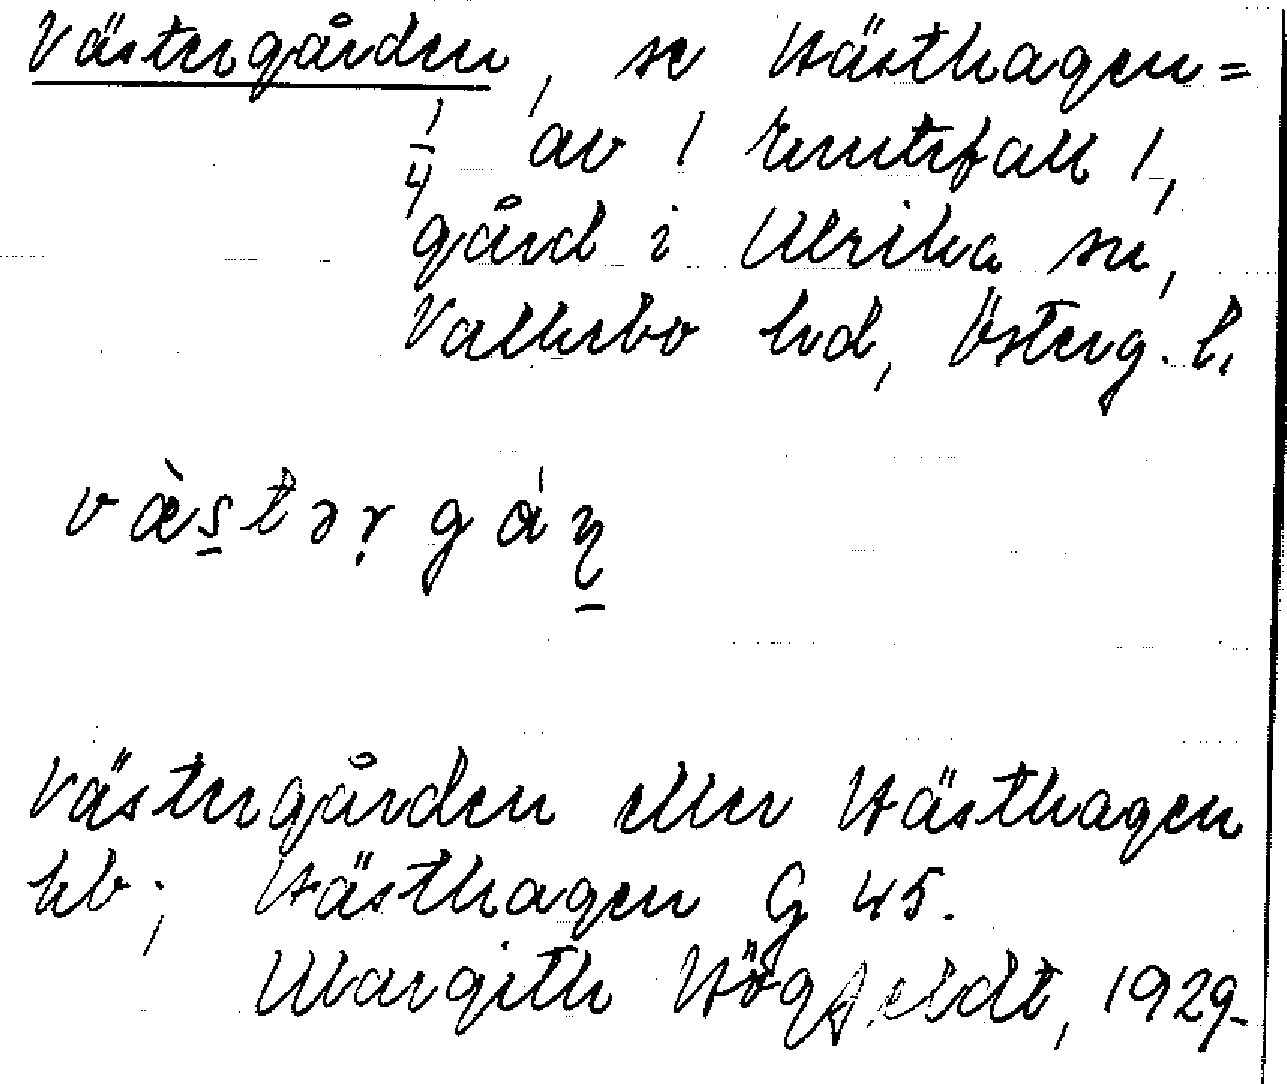 Västergården, se Hästhagen =
1/4 av 1 Emtefall 1,
gård i Ulrika sn,
Valkebo hd, Österg. l.
væ̀stər̥gáṇ
Västergården eller Hästhagen
kb; Hästhagen G 45.
Margith Högfeldt, 1929.